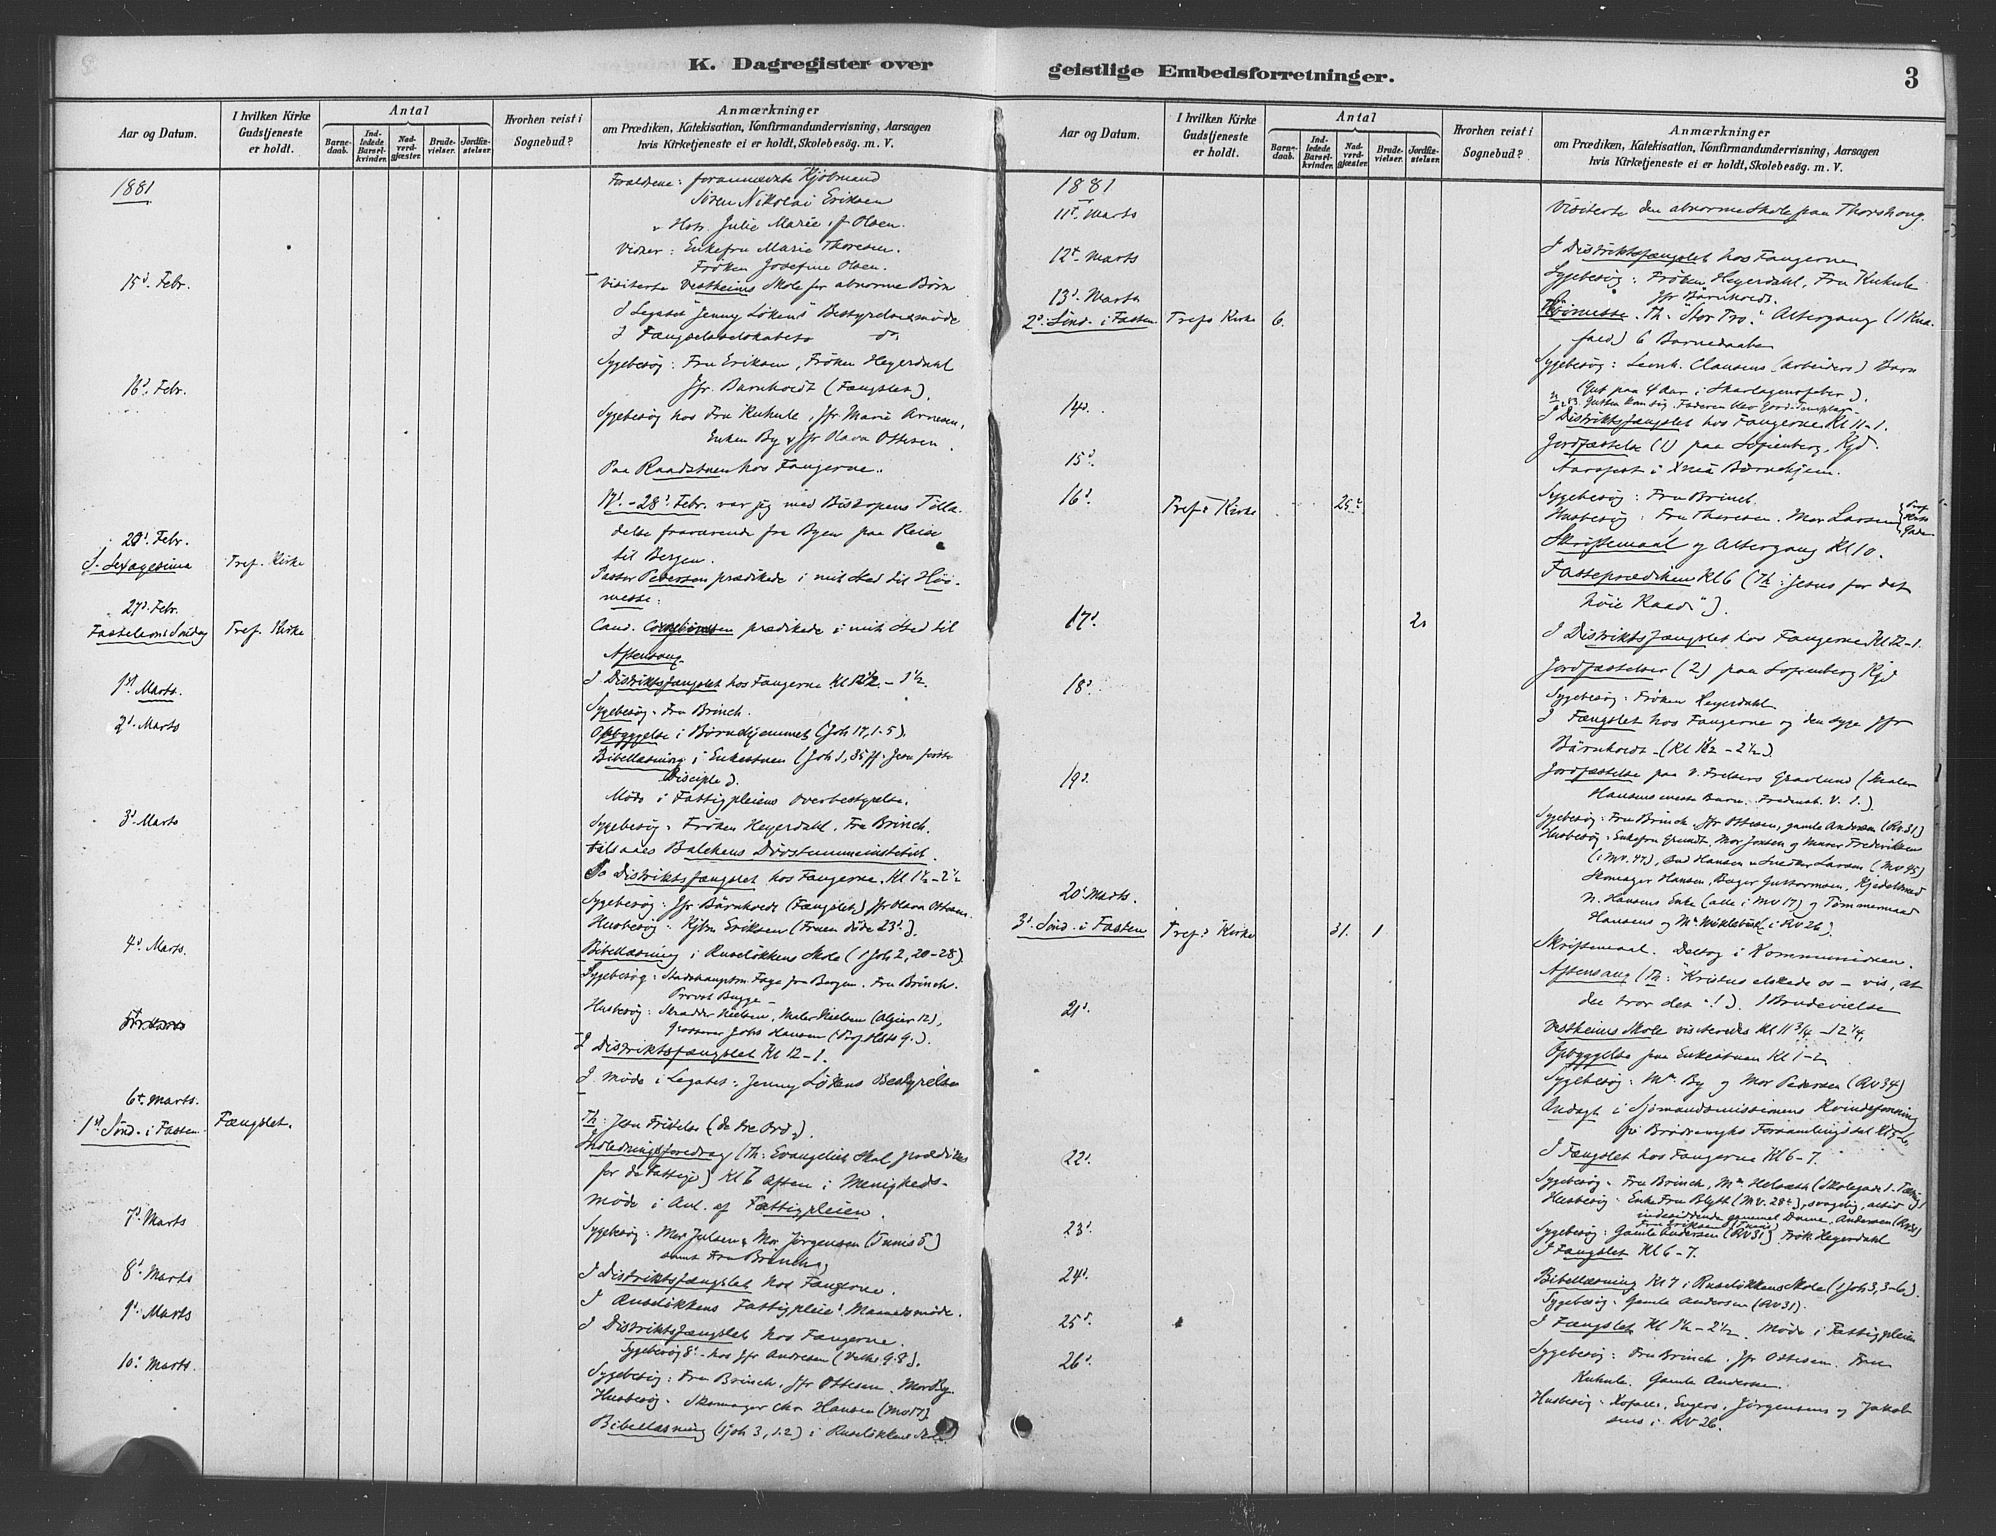 K. Dagregister over
Aar og Datum.
I hvilken Kirke Gudstjeneste er holdt.
Antal
Barnedaab.
Indledede Barselkvinder.
Nadverdgjæster.
Brudevielser.
Jordfæstelser.
Hvorhen reist i Sognebud?
Anmærkninger
om Prædiken, Katekisation, Konfirmandundervisning, Aarsagen
hvis Kirketjeneste ei er holdt, Skolebesøg. m. V.
1881
Forældrene: forannævnte Kjøbmand
Søren Nikolai Eriksen
Hstr. Julie Marie, f. Olsen.
Vidner: Enkefru Marie Thoresen.
Frøken Josefine Olsen.
15d. Febr.
Visiterte Vestheims Skole for abnorme Børn
I Legatet Jenny Løkens Bestyrelsesmøde
I Fængselsselskabets do
Sygebesøg: Fru Eriksen, Frøken Heyerdahl
Jfr. Barnholdt (Fængslet).
16d. Febr.
Sygebesøg hos Fru Kuhule, Jfr Marie Arnesen,
Enken By & Jfr Olava Ottesen.
Paa Raadstuen hos Fangerne.
17d. - 28d. Febr. var jeg med Bispens Tilla-
delse fraværende fra Byen paa Reise
til Bergen.
20d. Febr.
S. Sexagesima Tref. Kirke
Pastor Petersen prædikede i mit Sted til Høi-
messe.
27d. Febr.
Fastelavns Søndag Tref. Kirke
Cand. prædikede i mit Sted til
Aftensang.
1st Marts.
I Distriktsfængslet hos Fangerne Kl 12½ - 1½.
Sygebesøg. Fru Brinch.
2d. Marts
Opbyggelse i Børnehjemmet (Joh 17, 1-5).
Bibellæsning i Enkestuen (Joh 1, 35 ff. Jesu første
Disciple).
Møde i Fattigpleiens Overbestyrelse.
3d Marts
Sygebesøg. Frøken Heyerdahl. Fru Brinch.
Balchens Døvstummeinstitut.
Distriktsfængslet hos Fangerne. Kl 1½ - 2½
Sygebesøg: Jfr Bärnholdt (Fængslet) Jfr Olava Ottesen.
Husbesøg. Kjbm Eriksen (Fruen døde 23d.).
4d. Marts.
Bibellæsning i Ruseløkkens Skole (1 Joh 2, 20-28).
Sygebesøg: fra Bergen. Fru Brinch.
Provst Bugge
Husbesøg: Skrædder Nielsen, Maler Nielsen (Algier 12),
Grosserer Johs Hansen
I Distriktsfængslet Kl 12-1.
I Møde i Legatet: Jenny Løkens Bestyrelse
6t. Marts.
1st Sønd. i Fasten. Fængslet.
Th: Jesu Fristelse (de tre Ord).
Indledningsforedrag (Th: Evangeliet skal prædikes
for de Fattige) Kl 6 Aften i Menigheds-
møde i Anl. af Fattigpleien.
7d Marts
Sygebesøg: Mor Julsen & Mor Jørgensen (Tunis 5)
samt Fru Brinch.
8d Marts
I Distriktsfængslet hos Fangerne.
9d. Marts
I Ruseløkkens Fattigpleie Maanedsmøde.
I Distriktsfængslet hos Fangerne.
Sygebesøg 8d. hos Jfr Andresen
10d. Marts.
Sygebesøg: Fru Brinch. Jfr Ottesen. Mor By.
Husbesøg. Skomager Chr Hansen (MV 17).
Bibellæsning (1 Joh 3, 1.2) i Ruseløkkens Skole
geistlige Embedsforretninger.
3
Aar og Datum.
I hvilken Kirke Gudstjeneste er holdt.
Antal
Barnedaab.
Indledede Barselkvinder.
Nadverdgjæster.
Brudevielser.
Jordfæstelser.
Hvorhen reist i Sognebud?
Anmærkninger
om Prædiken, Katekisation, Konfirmandundervisning, Aarsagen
hvis Kirketjeneste ei er holdt, Skolebesøg. m. V.
1881
11t. Marts
Visiterte den abnorme Skole paa Thorshaug.
12t. Marts
I Distriktsfængslet hos Fangerne
Sygebesøg: Frøken Heyerdahl, Fru Kuhule
Jfr Bärnholdt.
13d. Marts
2d. Sønd. i Fasten Trefs Kirke 6.
Høimesse. Th: "Stor Tro". Altergang (1 Knæ-
fald) 6 Barnedaab
Sygebesøg: Clausens (Arbeiders) Barn
(Gut paa 4 Aar, i Skarlagensfeber).
14d.
I Distriktsfængslet hos Fangerne Kl 11-1.
Jordfæstelse (1) paa Sofienberg. Kgd.
15d.
Aarsfest i Børnehjem.
16d. Trefs Kirke 25
Sygebesøg: Fru Brinch.
Husbesøg: Fru Thoresen. Mor Larsen
Skriftemaal og Altergang Kl 10.
Fasteprædiken Kl 6 (Th: Jesus for det
høie Raad").
17d. 2
I Distriktsfængslet hos Fangerne Kl 12-1.
Jordfæstelser (2) paa Sofienberg Kgd
18d.
Sygebesøg: Frøken Heyerdahl
I Fængslet hos Fangerne og den syge Jfr
Bärnholdt (Kl 1½ - 2½).
19d.
Jordfæstelse paa V. Frelsers Gravlund (Maler
Hansens Barn.
Sygebesøg: Fru Brinch. Jfr Ottesen, gamle Andersen (RV 31)
Husbesøg. Enkefru Grundt, Mor Jonsen og Murer Frederiksen
(i MV. 47), Larsen (MV 45)
Skomager Hansen, Guttormsen, Kjedelsmed
N. Hansens Enke (alle i MV 17) og Tømmermand
Hansens og Mm Miklebust (i RV 26).
20d Marts.
3d. Sønd. i Fasten Trefs Kirke 31. 1
Skriftemaal. Deltog i Kommunionen.
Aftensang (Th: "Kristus elskede os - vis, at
du tror det"!). 1 Brudevielse
21d.
Vestheims Skole visiteredes Kl 11¾ - 12¼.
Opbyggelse paa Enkestuen Kl 1-2
Sygebesøg: Mm By og Mor Pedersen (RV 34)
Andagt i Sjømandsmissionens Kvindeforening
Forsamlingssal Kl 5-6.
22d.
I Fængslet hos Fangerne Kl 6-7.
Sygebesøg. Fru Brinch, Mm
Husbesøg. Enke Fru Blyth (MV. 28),
23d.
Sygebesøg: Gamle Andersen (RV 31) Frøk. Heyerdahl
I Fængslet Kl 6-7.
24d.
Bibellæsning Kl 7 i Ruseløkkens Skole (1 Joh 3, 3-6).
Sygebesøg. Gamle Andersen (RV 31).
25d.
I Fængslet Kl 1½ - 2½. Møde i Fattigpleien
26d.
Sygebesøg: Fru Brinch. Jfr Ottesen. Fru
Kuhule. Gamle Andersen.
Husbesøg: Engers, Jørgensens og Jakob-
sens i RV 26.